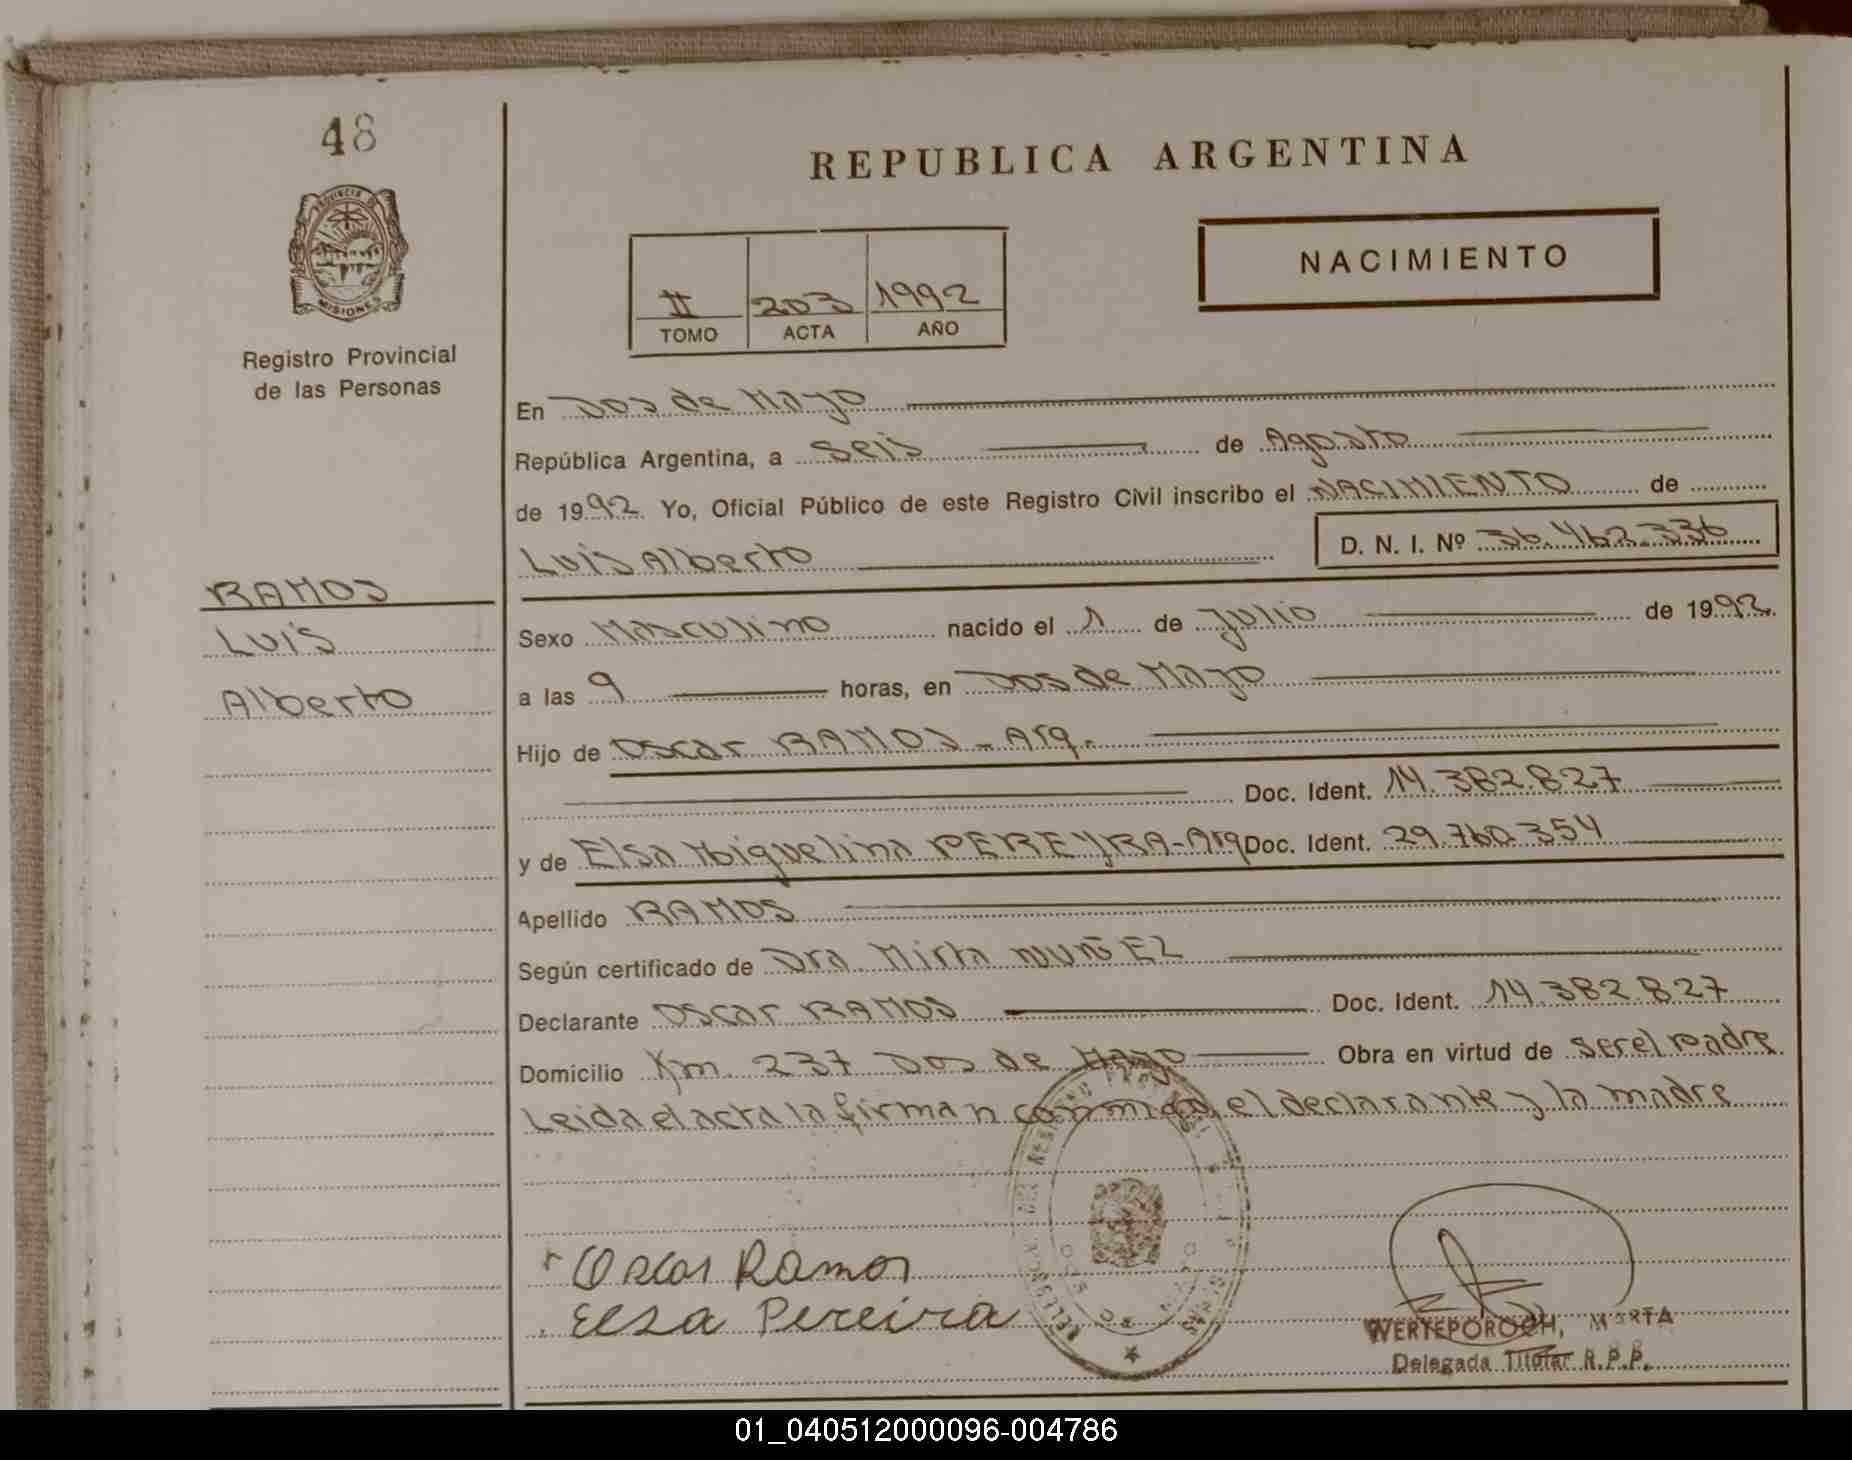 48
REPUBLICA ARGENTINA
PROVINCIA DE
MISIONES
Registro Provincial
de las Personas
NACIMIENTO
II 203 1992
TOMO ACTA AÑO
En Dos de Mayo
República Argentina, a Seis de Agosto
de 1992 Yo, Oficial Público de este Registro Civil inscribo el NACIMIENTO de
Luis Alberto D. N. I. Nº 36.462.336
RAMOS
Luis
Alberto
Sexo Masculino nacido el 1 de Julio de 1992.
a las 9 horas, en Dos de Mayo
Hijo de Oscar RAMOS - Arg.
Doc. Ident. 14.382.827
y de Elsa Miguelina PEREYRA - Arg Doc. Ident. 29.760.354
Apellido RAMOS
Según certificado de Dra. Mirta NUÑEZ
Declarante Oscar RAMOS Doc. Ident. 14.382.827
Domicilio Km. 237 Dos de Mayo Obra en virtud de ser el padre
Leida el acta la firman conmigo el declarante y la madre
Oscar Ramos
Elsa Pereira
WERTEPOROCH, MARTA
Delegada Titular R.P.P.
01_040512000096-004786